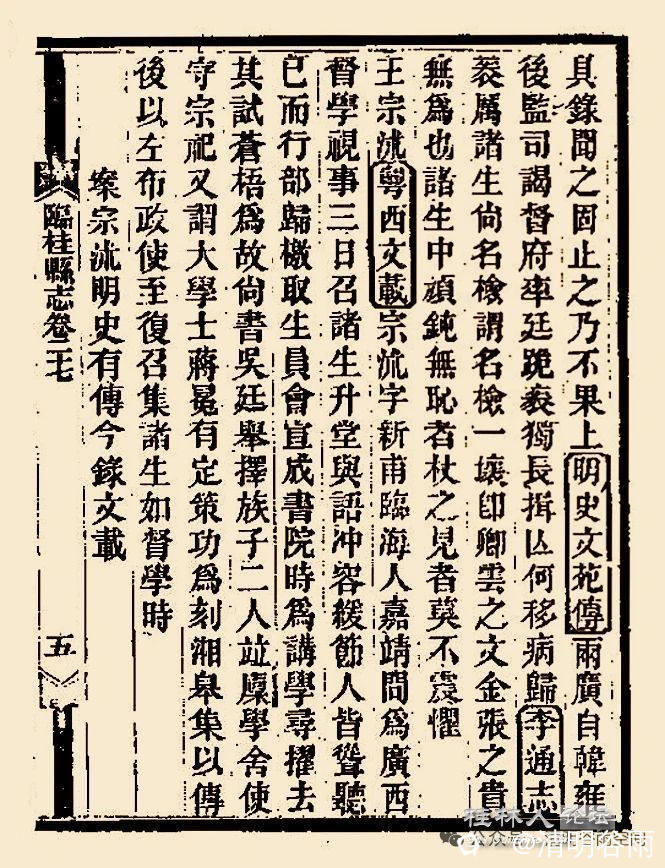 具錄聞之固止之乃不果上明史文苑傳兩廣自韓雍
後監司謁督府率廷跪袤獨長揖亾何移病歸李通志
袤厲諸生尙名檢謂名檢一壞卽卿雲之文金張之貴
無爲也諸生中頑鈍無恥者杖之見者莫不震懼
王宗沐粵西文載宗沐字新甫臨海人嘉靖間爲廣西
督學視事三日召諸生升堂與語冲容緩節人皆聳聽
已而行部歸檄取生員會宣成書院時爲講學尋擢去
其試蒼梧爲故尙書吳廷舉擇族子二人竝廩學舍使
守宗祀又謂大學士蔣冕有定策功爲刻湘皋集以傳
後以左布政使至復召集諸生如督學時
案宗沐明史有傳今錄文載
臨桂縣志卷二七
五
桂林人论坛
公众号·清明谷雨空间
@清明谷雨